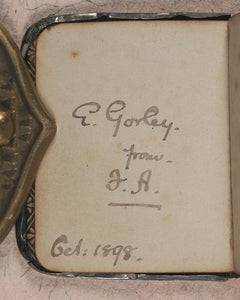 E. Gorley.
from.
F. A.
Oct: 1898.